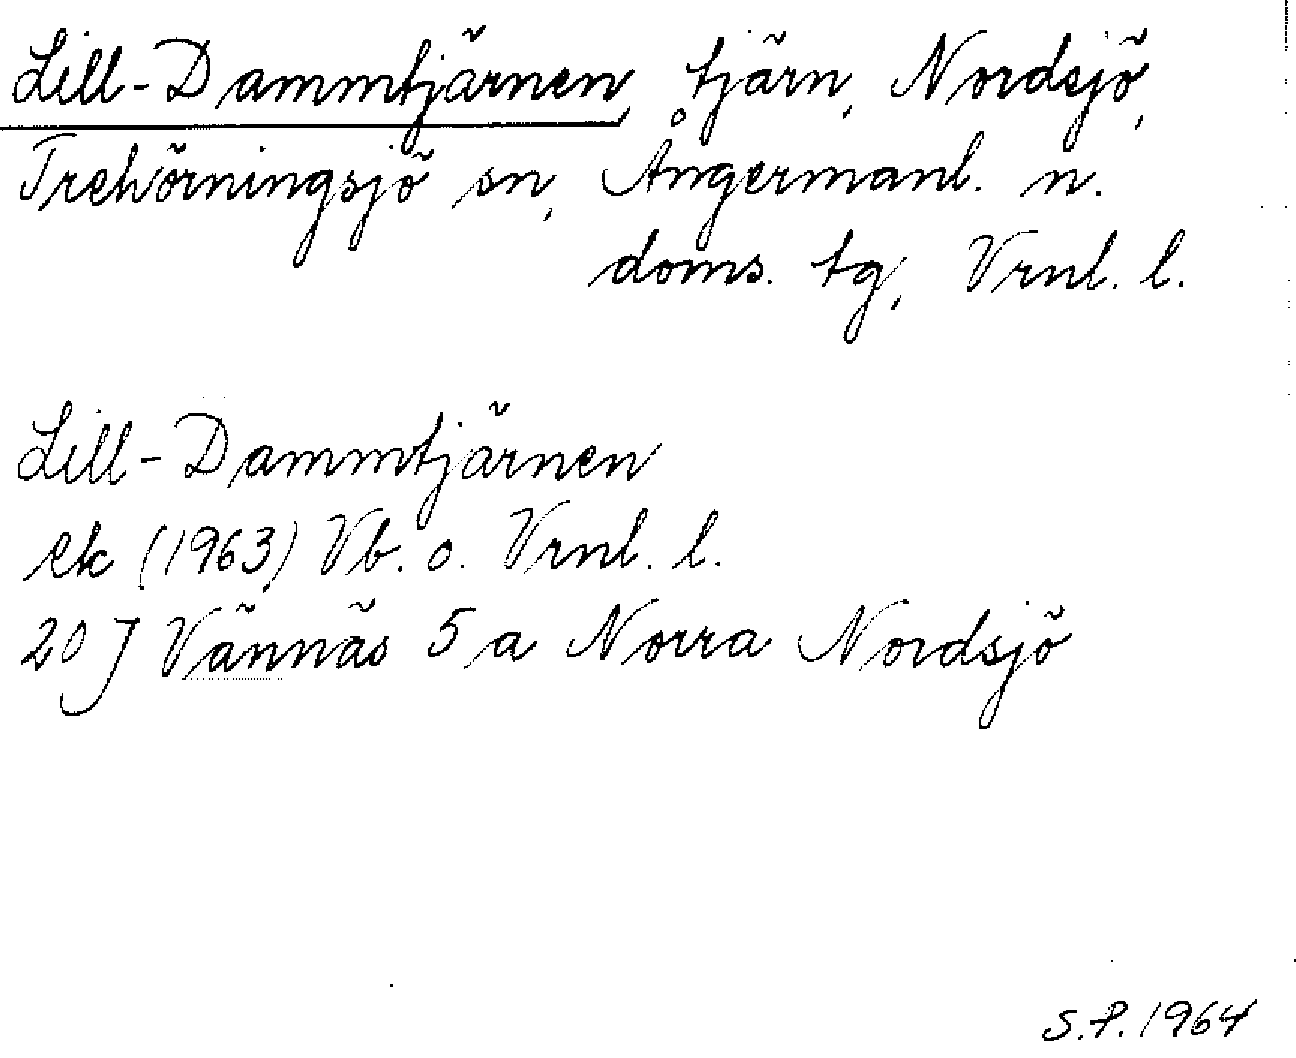 Lill-Dammtjärnen, tjärn, Nordsjö,
Trehörningsjö sn, Ångermanl. n.
doms. tg, Vrnl. l.
Lill-Dammtjärnen
ek (1963) Vb. o. Vrnl. l.
20 J Vännäs 5 a Norra Nordsjö
S.P. 1964